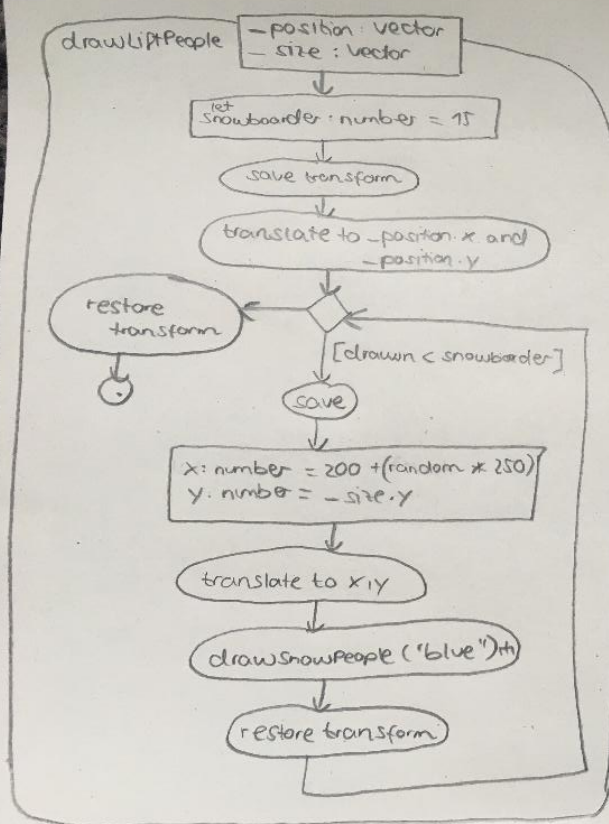 drawLiftPeople
_position : vector
_size : vector
let
snowboarder : number = 15
save transform
translate to _position.x and
_position.y
restore
transform
[drawn < snowboarder]
save
x: number = 200 + (random * 250)
y: number = _size.y
translate to x,y
drawSnowPeople ("blue")
restore transform